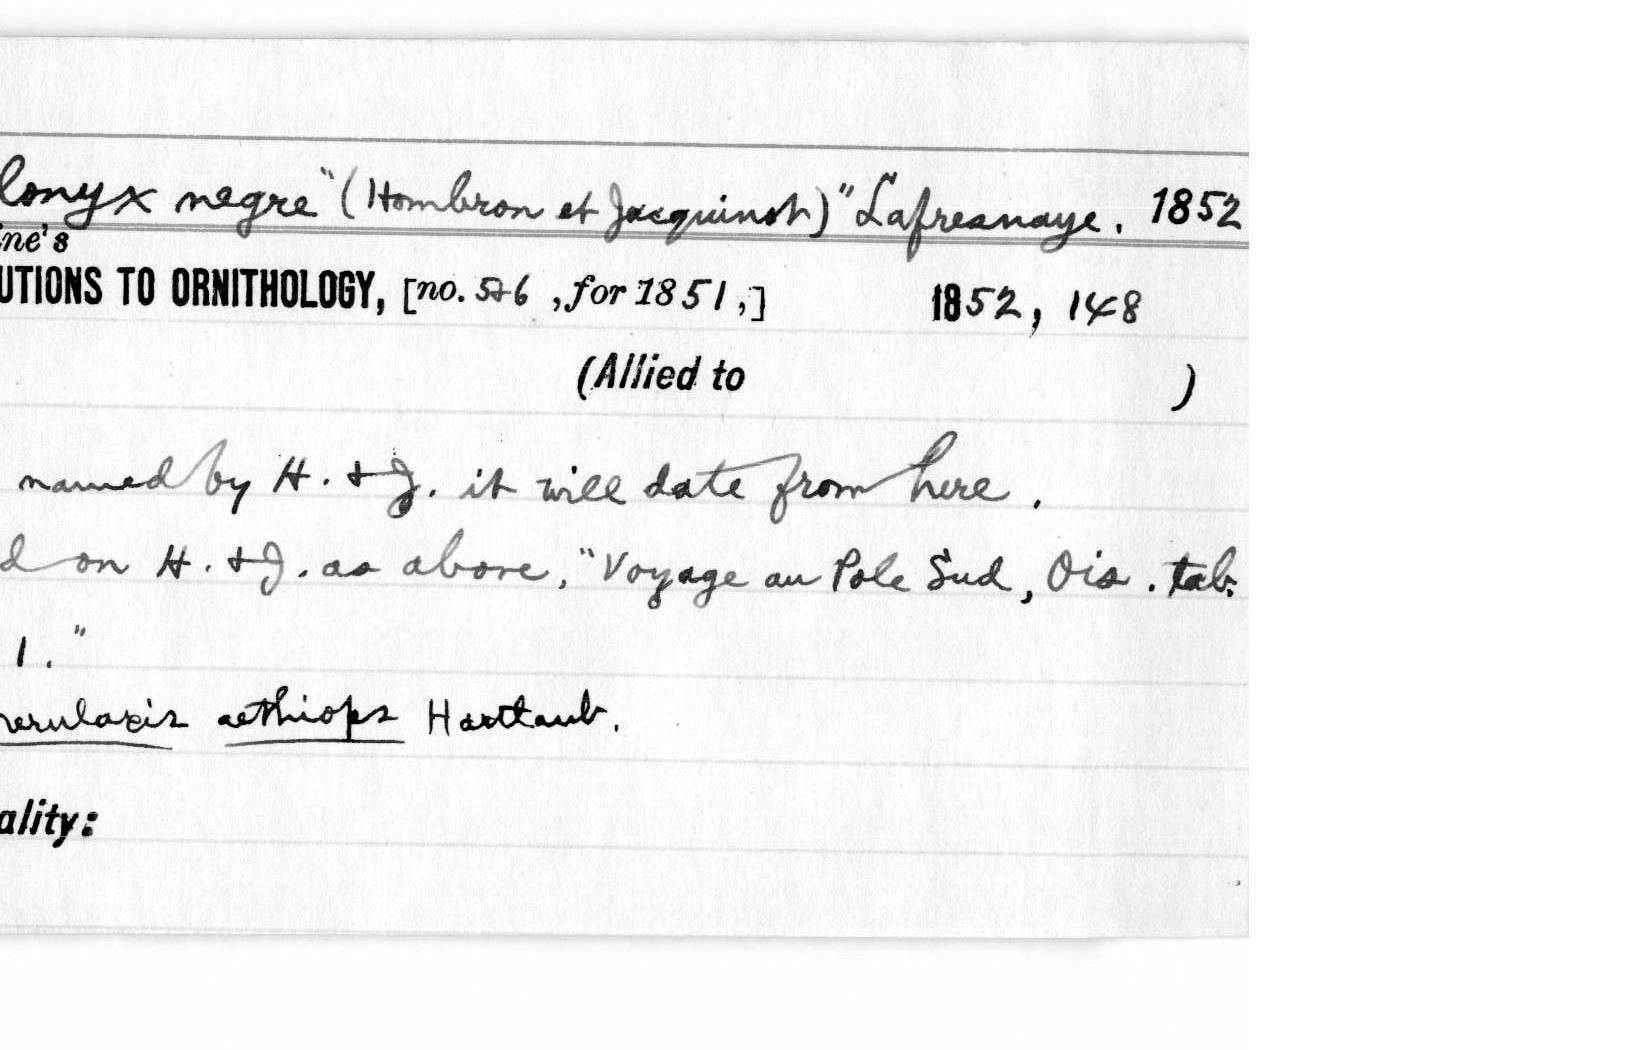 lonyx negre" (Hombron et Jacquinot)" Lafresnaye. 1852
ine's
UTIONS TO ORNITHOLOGY, [no. 5+6 , for 1851,] 1852, 148
(Allied to )
named by H. + J. it will date from here.
d on H. + J. as above, "Voyage au Pole Sud, Ois. tab.
1."
merulaxis aethiops Hartlaub.
ality: